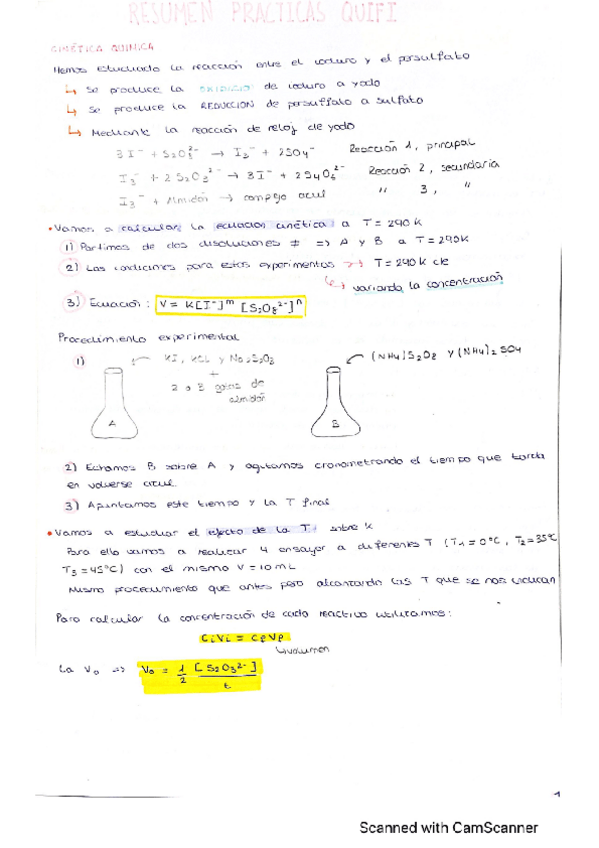 RESUMEN PRACTICAS QUIFI
CINÉTICA QUIMICA
Hemos estudiado la reacción entre el ioduro y el persulfato
↳ Se produce la OXIDACIÓ de ioduro a yodo
↳ Se produce la REDUCCION de persulfato a sulfato
↳ Mediante la reacción de reloj de yodo
3I⁻ + S₂O₈²⁻ → I₃⁻ + 2SO₄⁻ Reacción 1, principal
I₃⁻ + 2S₂O₃²⁻ → 3I⁻ + 2S₄O₆²⁻ Reacción 2, secundaria
I₃⁻ + Almidón → complejo azul " 3, "
• Vamos a calcular la ecuacion cinética a T = 290 K
1) Partimos de dos disoluciones ≠ => A y B a T = 290K
2) Las condiciones para estos experimentos → T = 290 K cte
↳ variando la concentración
3) Ecuación: V = K[I⁻]ᵐ [S₂O₈²⁻]ⁿ
Procedimiento experimental
1) KI, KCl y Na₂S₂O₃
+
2 o 3 gotas de
almidón
(NH₄)S₂O₈ y (NH₄)₂SO₄
A
B
2) Echamos B sobre A y agitamos cronometrando el tiempo que tarda
en volverse azul.
3) Apuntamos este tiempo y la T final
• Vamos a estudiar el efecto de la T sobre K
Para ello vamos a realizar 4 ensayos a diferentes T (T₁ = 0°C, T₂ = 35°C
T₃ = 45°C) con el mismo V = 10 mL
Mismo procedimiento que antes pero alcanzando las T que se nos indican
Para calcular la concentración de cada reactivo utilizamos:
CᵢVᵢ = CfVf
↳ volumen
La V₀ => V₀ = 1/2 [S₂O₃²⁻]/t
1
Scanned with CamScanner